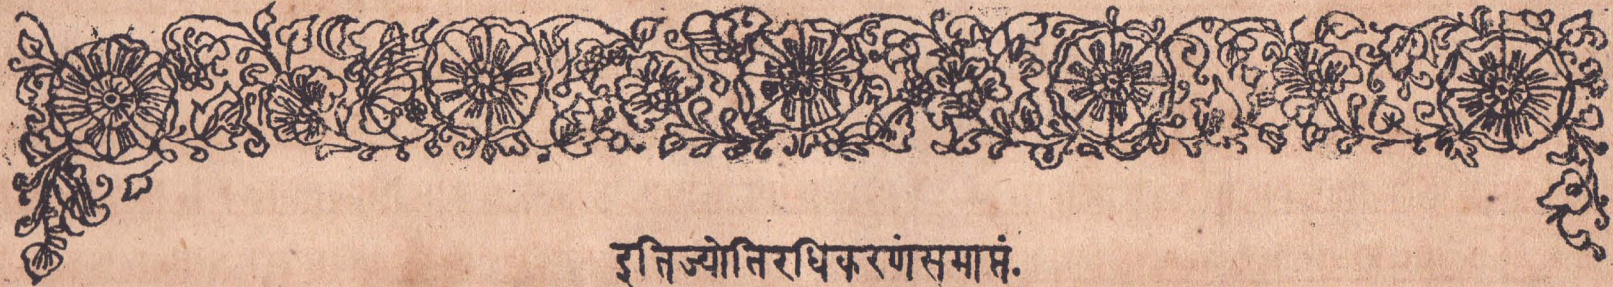 इतिज्योतिरधिकरणंसमाप्तं.